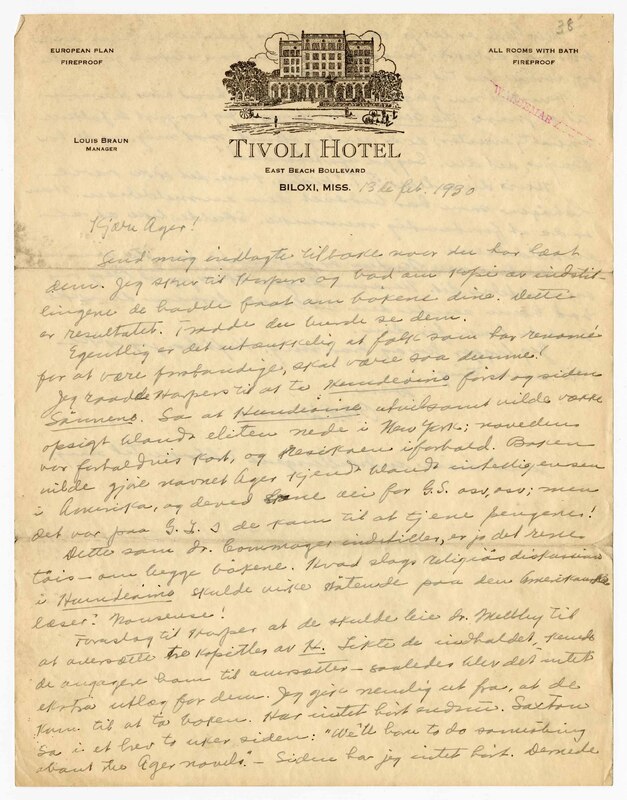 38
EUROPEAN PLAN
FIREPROOF
ALL ROOMS WITH BATH
FIREPROOF
WALDEMAR
LOUIS BRAUN
MANAGER
TIVOLI HOTEL
EAST BEACH BOULEVARD
BILOXI, MISS. 13de feb. 1930
Kjære Ager!
Send mig indlagte tilbake naar du har læst
dem. Jeg skrev til Harpers og bad om kopi av indstil-
lingene de hadde faat om bøkene dine. Dette
er resultatet. Trodde du burde se dem.
Egentlig er det utænkelig at folk som har renomé
for at være forstandige, skal være saa dumme!
Jeg raadde Harpers til at ta Hundeøine først og siden
Sønnene. Sa at Hundeøine utvilsomt vilde vække
opsigt blandt eliten nede i New York;
var forholdsvis kort, og resikoen iforhold. Boken
vilde gjøre navnet Ager kjendt blandt intelligensen
i Amerika, og derved bane vei for G.S. osv, osv; men
det var paa G. S. de kom til at tjene pengene!
Dette som dr. Commager indstiller, er jo det rene
tøis – om begge bøkene. Hvad slags religiøs disfussion
i Hundeøine skulde virke støtende paa den Amerikanske
læser? Nonsense!
Foreslog til Harper at de skulde leie dr. Melbby til
at oversætte tre kapitler av H. Likte de indholdet, kunde
de engagere ham til oversætter – saaledes blev det intet
ekstra utlæg for dem. Jeg gik nemlig ut fra, at de
kom til at ta boken. Har intet hørt endnu. Saxton
sa i et brev to uker siden: "We'll have to do something
about the Ager novels". – Siden har jeg intet hørt. Dernede